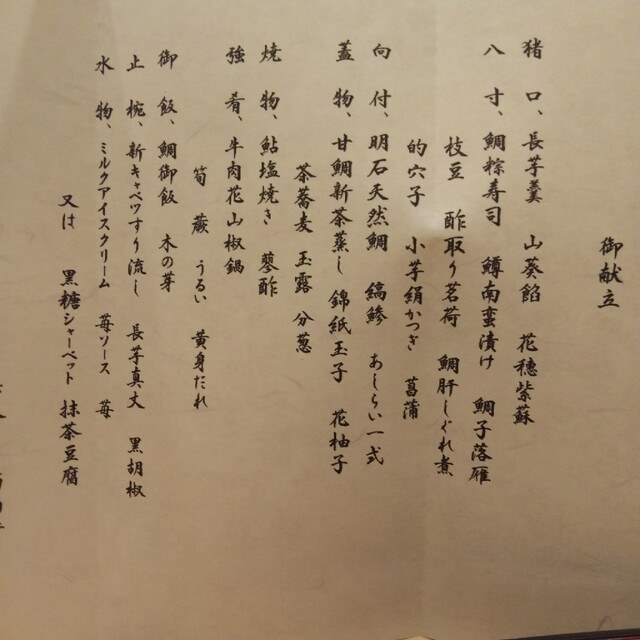 御献立
猪口、長芋羹 山葵餡 花穂紫蘇
八寸、鯛粽寿司 鱒南蛮漬け 鯛子落雁
枝豆 酢取り茗荷 鯛肝しぐれ煮
的穴子 小芋絹かつぎ 菖蒲
向付、明石天然鯛 縞鯵 あしらい一式
蓋物、甘鯛新茶蒸し 錦紙玉子 花柚子
茶蕎麦 玉露 分葱
焼物、鮎塩焼き 蓼酢
強肴、牛肉花山椒鍋
筍 蕨 うるい 黄身だれ
御飯、鯛御飯 木の芽
止椀、新キャベツすり流し 長芋真丈 黒胡椒
水物、ミルクアイスクリーム 苺ソース 苺
又は 黒糖シャーベット 抹茶豆腐